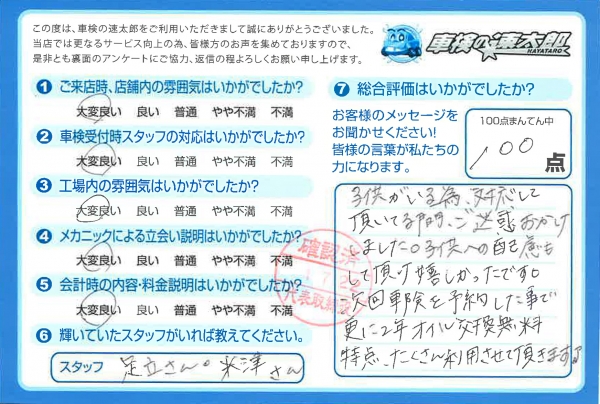 この度は、車検の速太郎をご利用いただきまして誠にありがとうございました。
当店では更なるサービス向上の為、皆様方のお声を集めておりますので、
是非とも裏面のアンケートにご協力、返信の程よろしくお願い申し上げます。
車検の速太郎
HAYATARO
1 ご来店時、店舗内の雰囲気はいかがでしたか?
大変良い 良い 普通 やや不満 不満
2 車検受付時スタッフの対応はいかがでしたか?
大変良い 良い 普通 やや不満 不満
3 工場内の雰囲気はいかがでしたか?
大変良い 良い 普通 やや不満 不満
4 メカニックによる立会い説明はいかがでしたか?
大変良い 良い 普通 やや不満 不満
5 会計時の内容・料金説明はいかがでしたか?
大変良い 良い 普通 やや不満 不満
6 輝いていたスタッフがいれば教えてください。
スタッフ 足立さん。米津さん
7 総合評価はいかがでしたか?
お客様のメッセージを
お聞かせください!
皆様の言葉が私たちの
力になります。
100点まんてん中
100点
子供がいる為、対応して
頂いてる間、ご迷惑おかけ
しました。子供への配慮も
して頂け嬉しかったです。
次回車検を予約した事で
更に2年オイル交換無料
特点、たくさん利用させて頂きます。
確認済
代表取締役